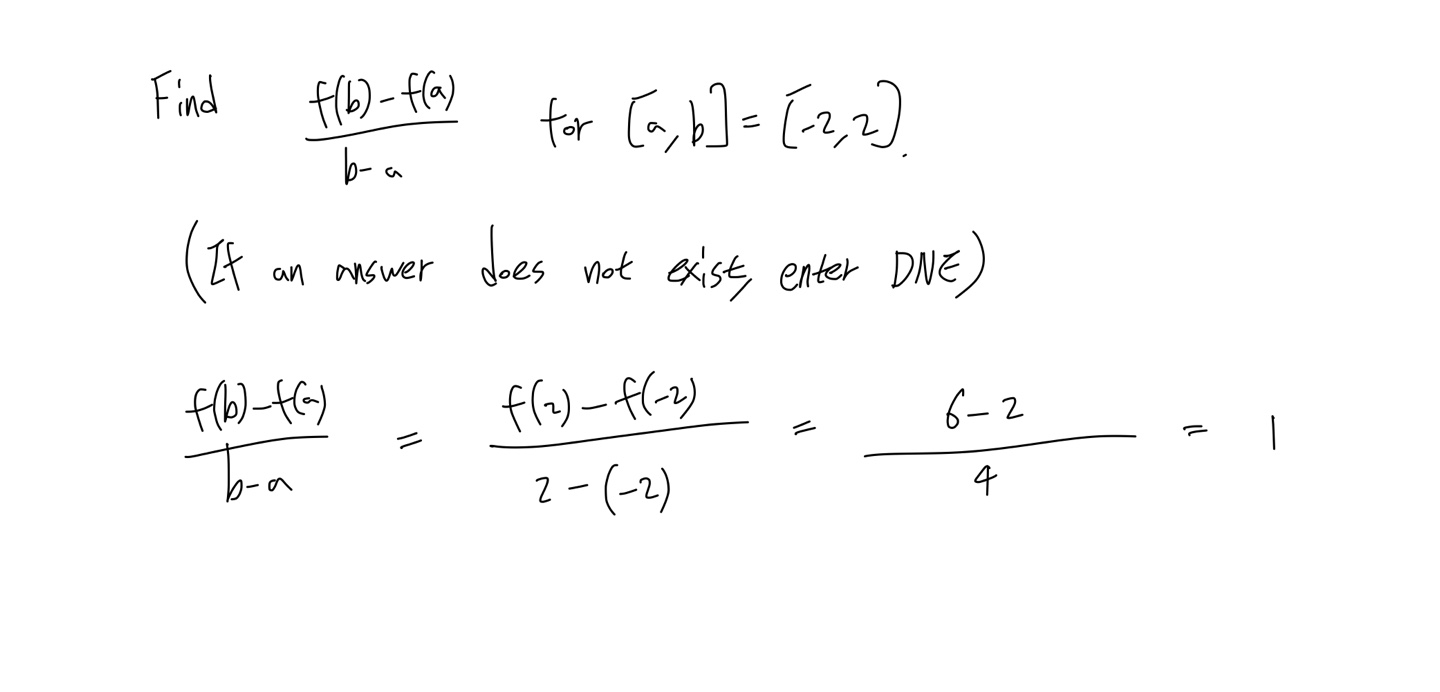 Find (f(b)-f(a))/(b-a) for [a,b]=[-2,2].
(If an answer does not exist, enter DNE)
(f(b)-f(a))/(b-a) = (f(2)-f(-2))/(2-(-2)) = (6-2)/4 = 1